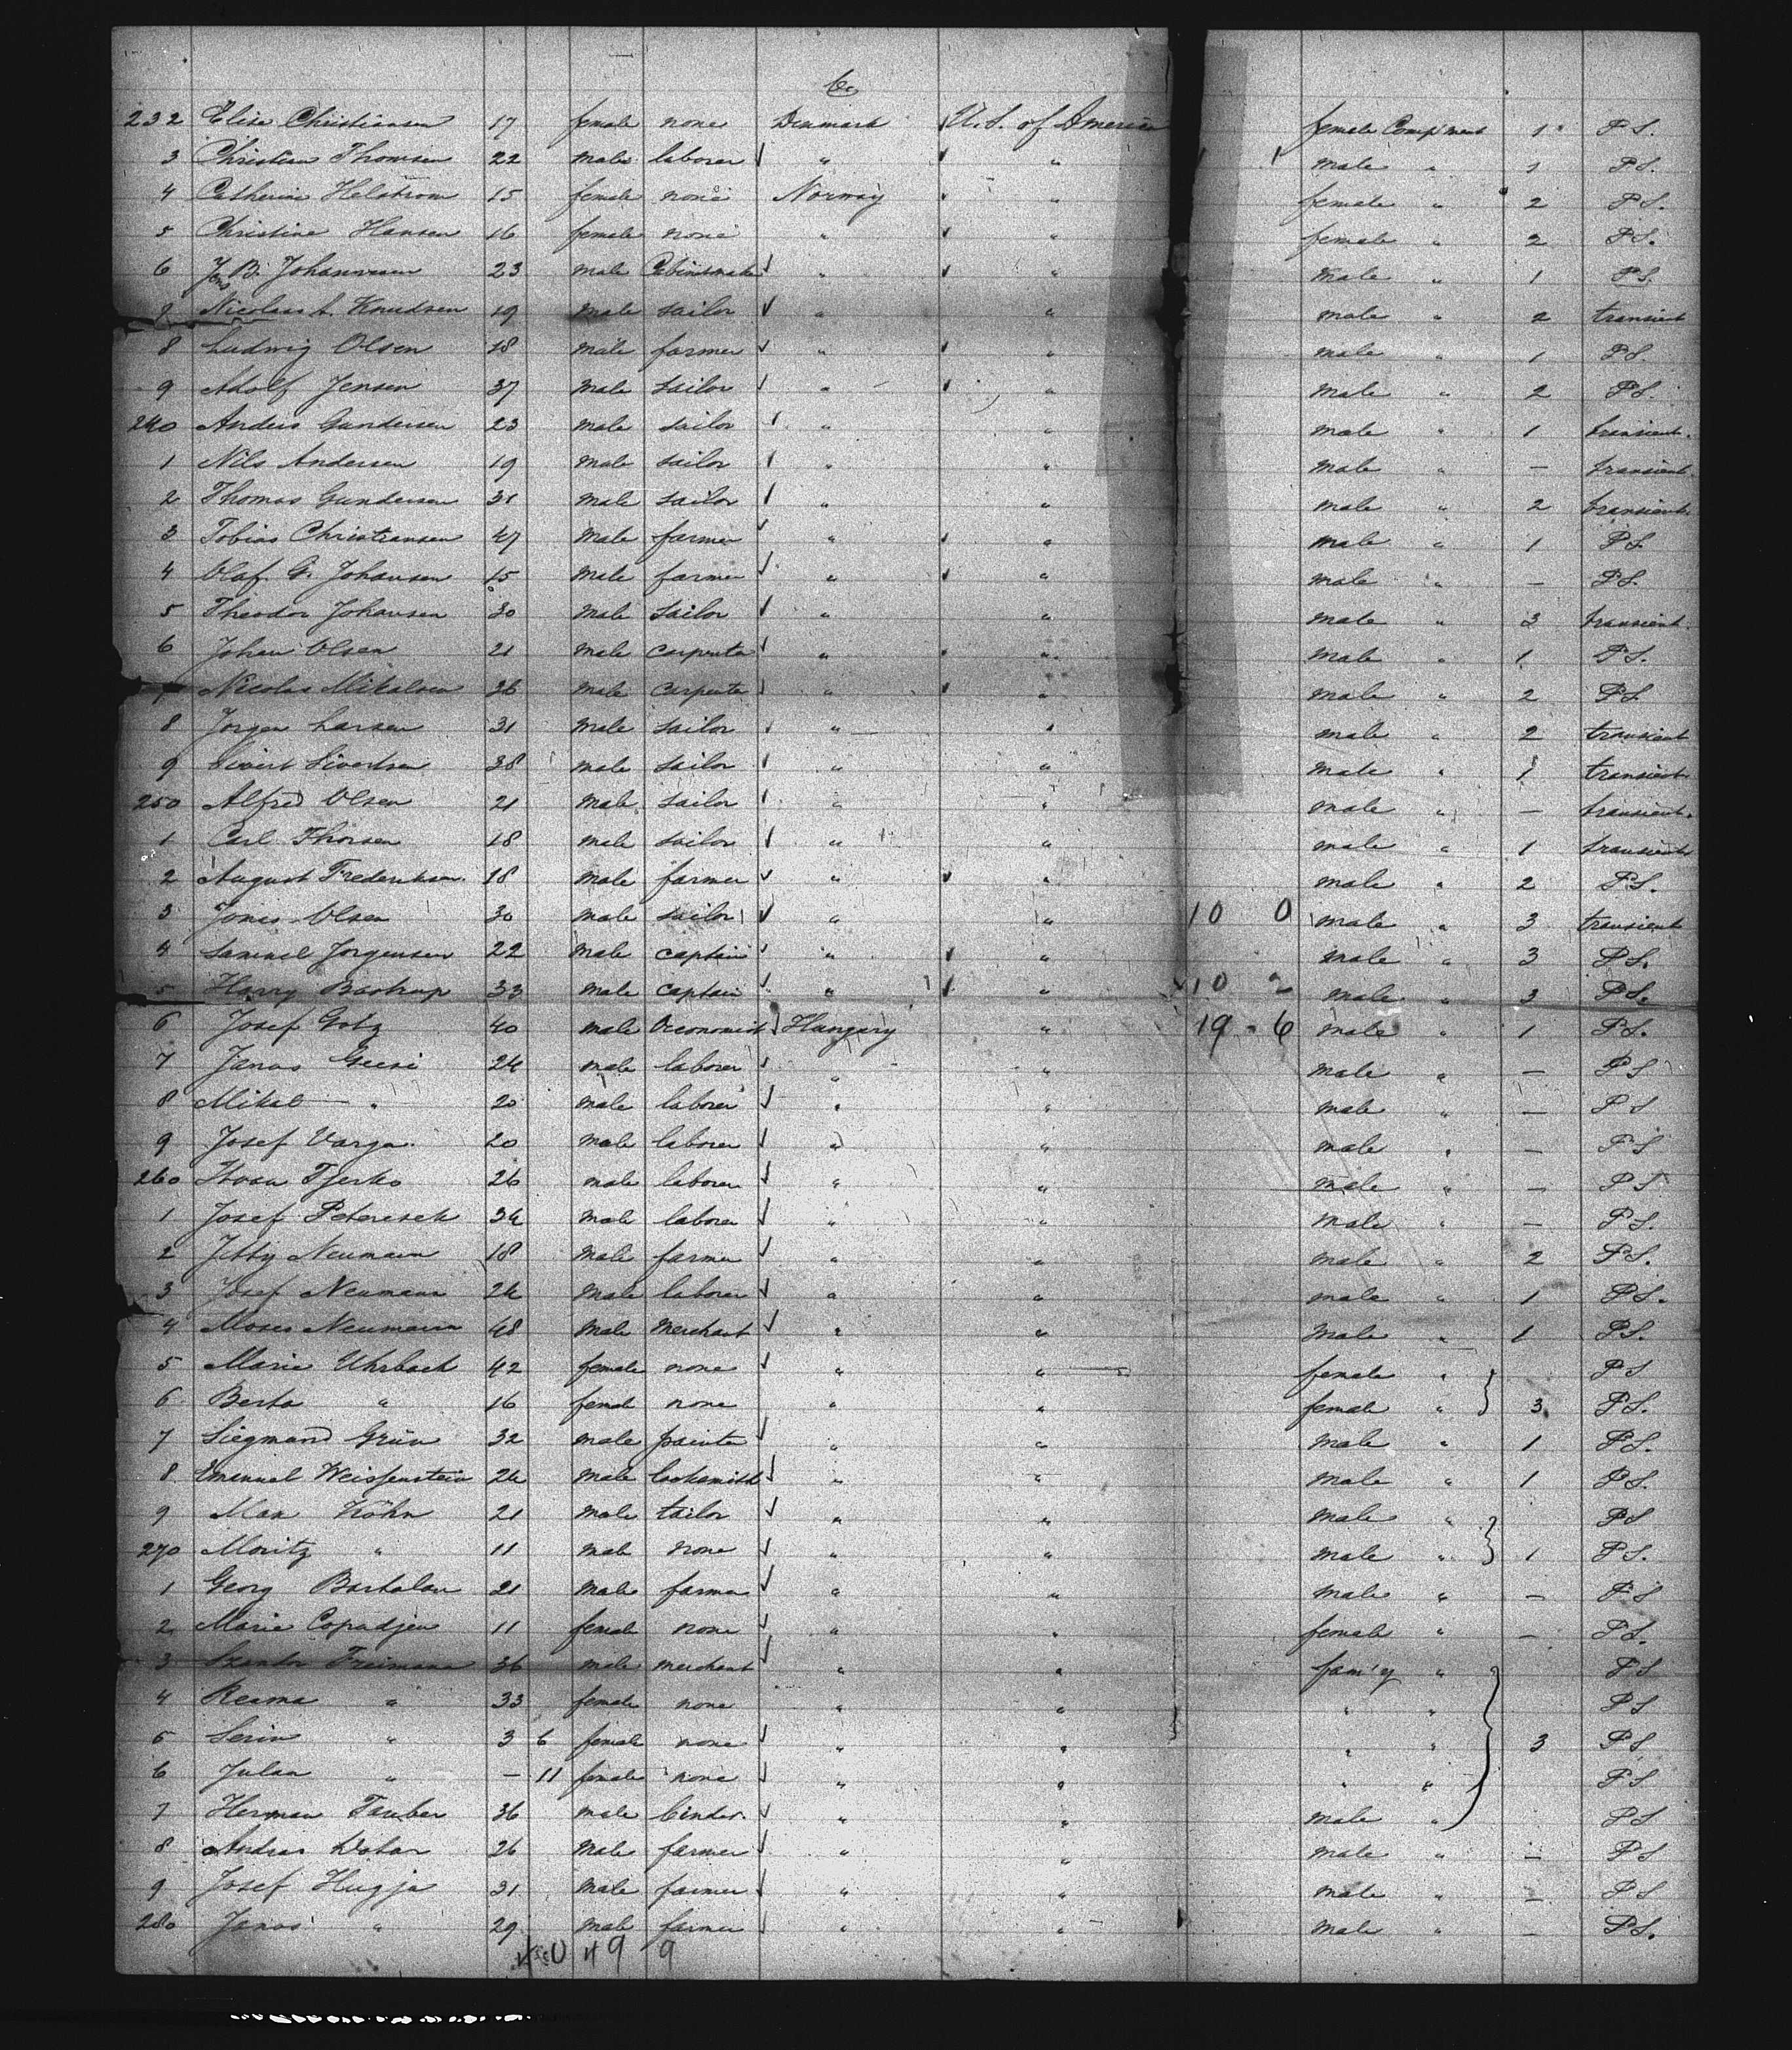 6
232 Elise Christiansen 17 female none Denmark U.S. of America female Comp'ment 1 P S.
3 Christian Thomsen 22 male laborer " " male " 1 P S.
4 Catherine Helstrom 15 female none Norway " female " 2 P S.
5 Christine Hansen 16 female none " " female " 2 P S.
6 Jens B. Johannesen 23 male Cabinetmaker " " male " 1 P S.
7 Nicolaus A. Knudsen 19 male sailor " " male " 2 transient
8 Ludwig Olsen 18 male farmer " " male " 1 P S
9 Adolf Jensen 37 male sailor " " male " 2 P S.
240 Anders Gundersen 23 male sailor " " male " 1 transient.
1 Nils Andersen 19 male sailor " " male " — transient.
2 Thomas Gundersen 31 male sailor " " male " 2 transient.
3 Tobias Christiansen 47 male farmer " " male " 1 P S.
4 Olaf G. Johansen 15 male farmer " " male " — P S.
5 Theodor Johansen 30 male sailor " " male " 3 transient.
6 Johan Olsen 21 male carpenter " " male " 1 P S.
7 Nicolas Mikalsen 36 male carpenter " " male " 2 P S.
8 Jorgen Larsen 31 male sailor " " male " 2 transient
9 Sivert Sivertsen 38 male sailor " " male " 1 transient.
250 Alfred Olsen 21 male sailor " " male " — transient.
1 Carl Thorsen 18 male sailor " " male " 1 transient
2 August Frederiksen 18 male farmer " " male " 2 P S.
3 Jones Olsen 30 male sailor " " 10 0 male " 3 transient
4 Samuel Jorgensen 22 male captain " " male " 3 P S.
5 Harry Bastrup 33 male captain " " 10 2 male " 3 P S.
6 Josef Gotz 40 male Oeconomist Hungary " 19 - 6 male " 1 P S.
7 Janos Gecsi 24 male laborer " " male " — P S
8 Mikal — " 20 male laborer " " male " — P S
9 Josef Varga 20 male laborer " " male " — P S
260 Ivan Tjerko 26 male laborer " " male " — P S
1 Josef Peteresek 34 male laborer " " male " — P S.
2 Jetty Neumann 18 male farmer " " male " 2 P S.
3 Josef Neumann 24 male laborer " " male " 1 P S.
4 Moses Neumann 48 male merchant " " male " 1 P S.
5 Marie Uhrbach 42 female none " " female " P S
6 Berta " 16 femal none " " female " 3 P S.
7 Siegmund Grün 32 male painter " " male " 1 P S.
8 Emanuel Weissenstein 24 male locksmith " " male " 1 P S.
9 Max Köhn 21 male tailor " " male " P S
270 Moritz " 11 male none " " male " 1 P S.
1 Georg Bartalan 21 male farmer " " male " — P S
2 Marie Copadjen 11 female none " " female " — P S.
3 Szandor Freimann 36 male merchant " " fam'y " P S
4 Reama " 33 female none " " " " P S
5 Serin " 3 6 female none " " " " 3 P S
6 Julan " — 11 female none " " " " P S
7 Herman Tauber 36 male binder " " male " P S
8 Andras 26 male farmer " " male " — P S
9 Josef Hugja 31 male farmer " " male " — P S
280 Janos " 29 male farmer " " male " — P S.
49 9